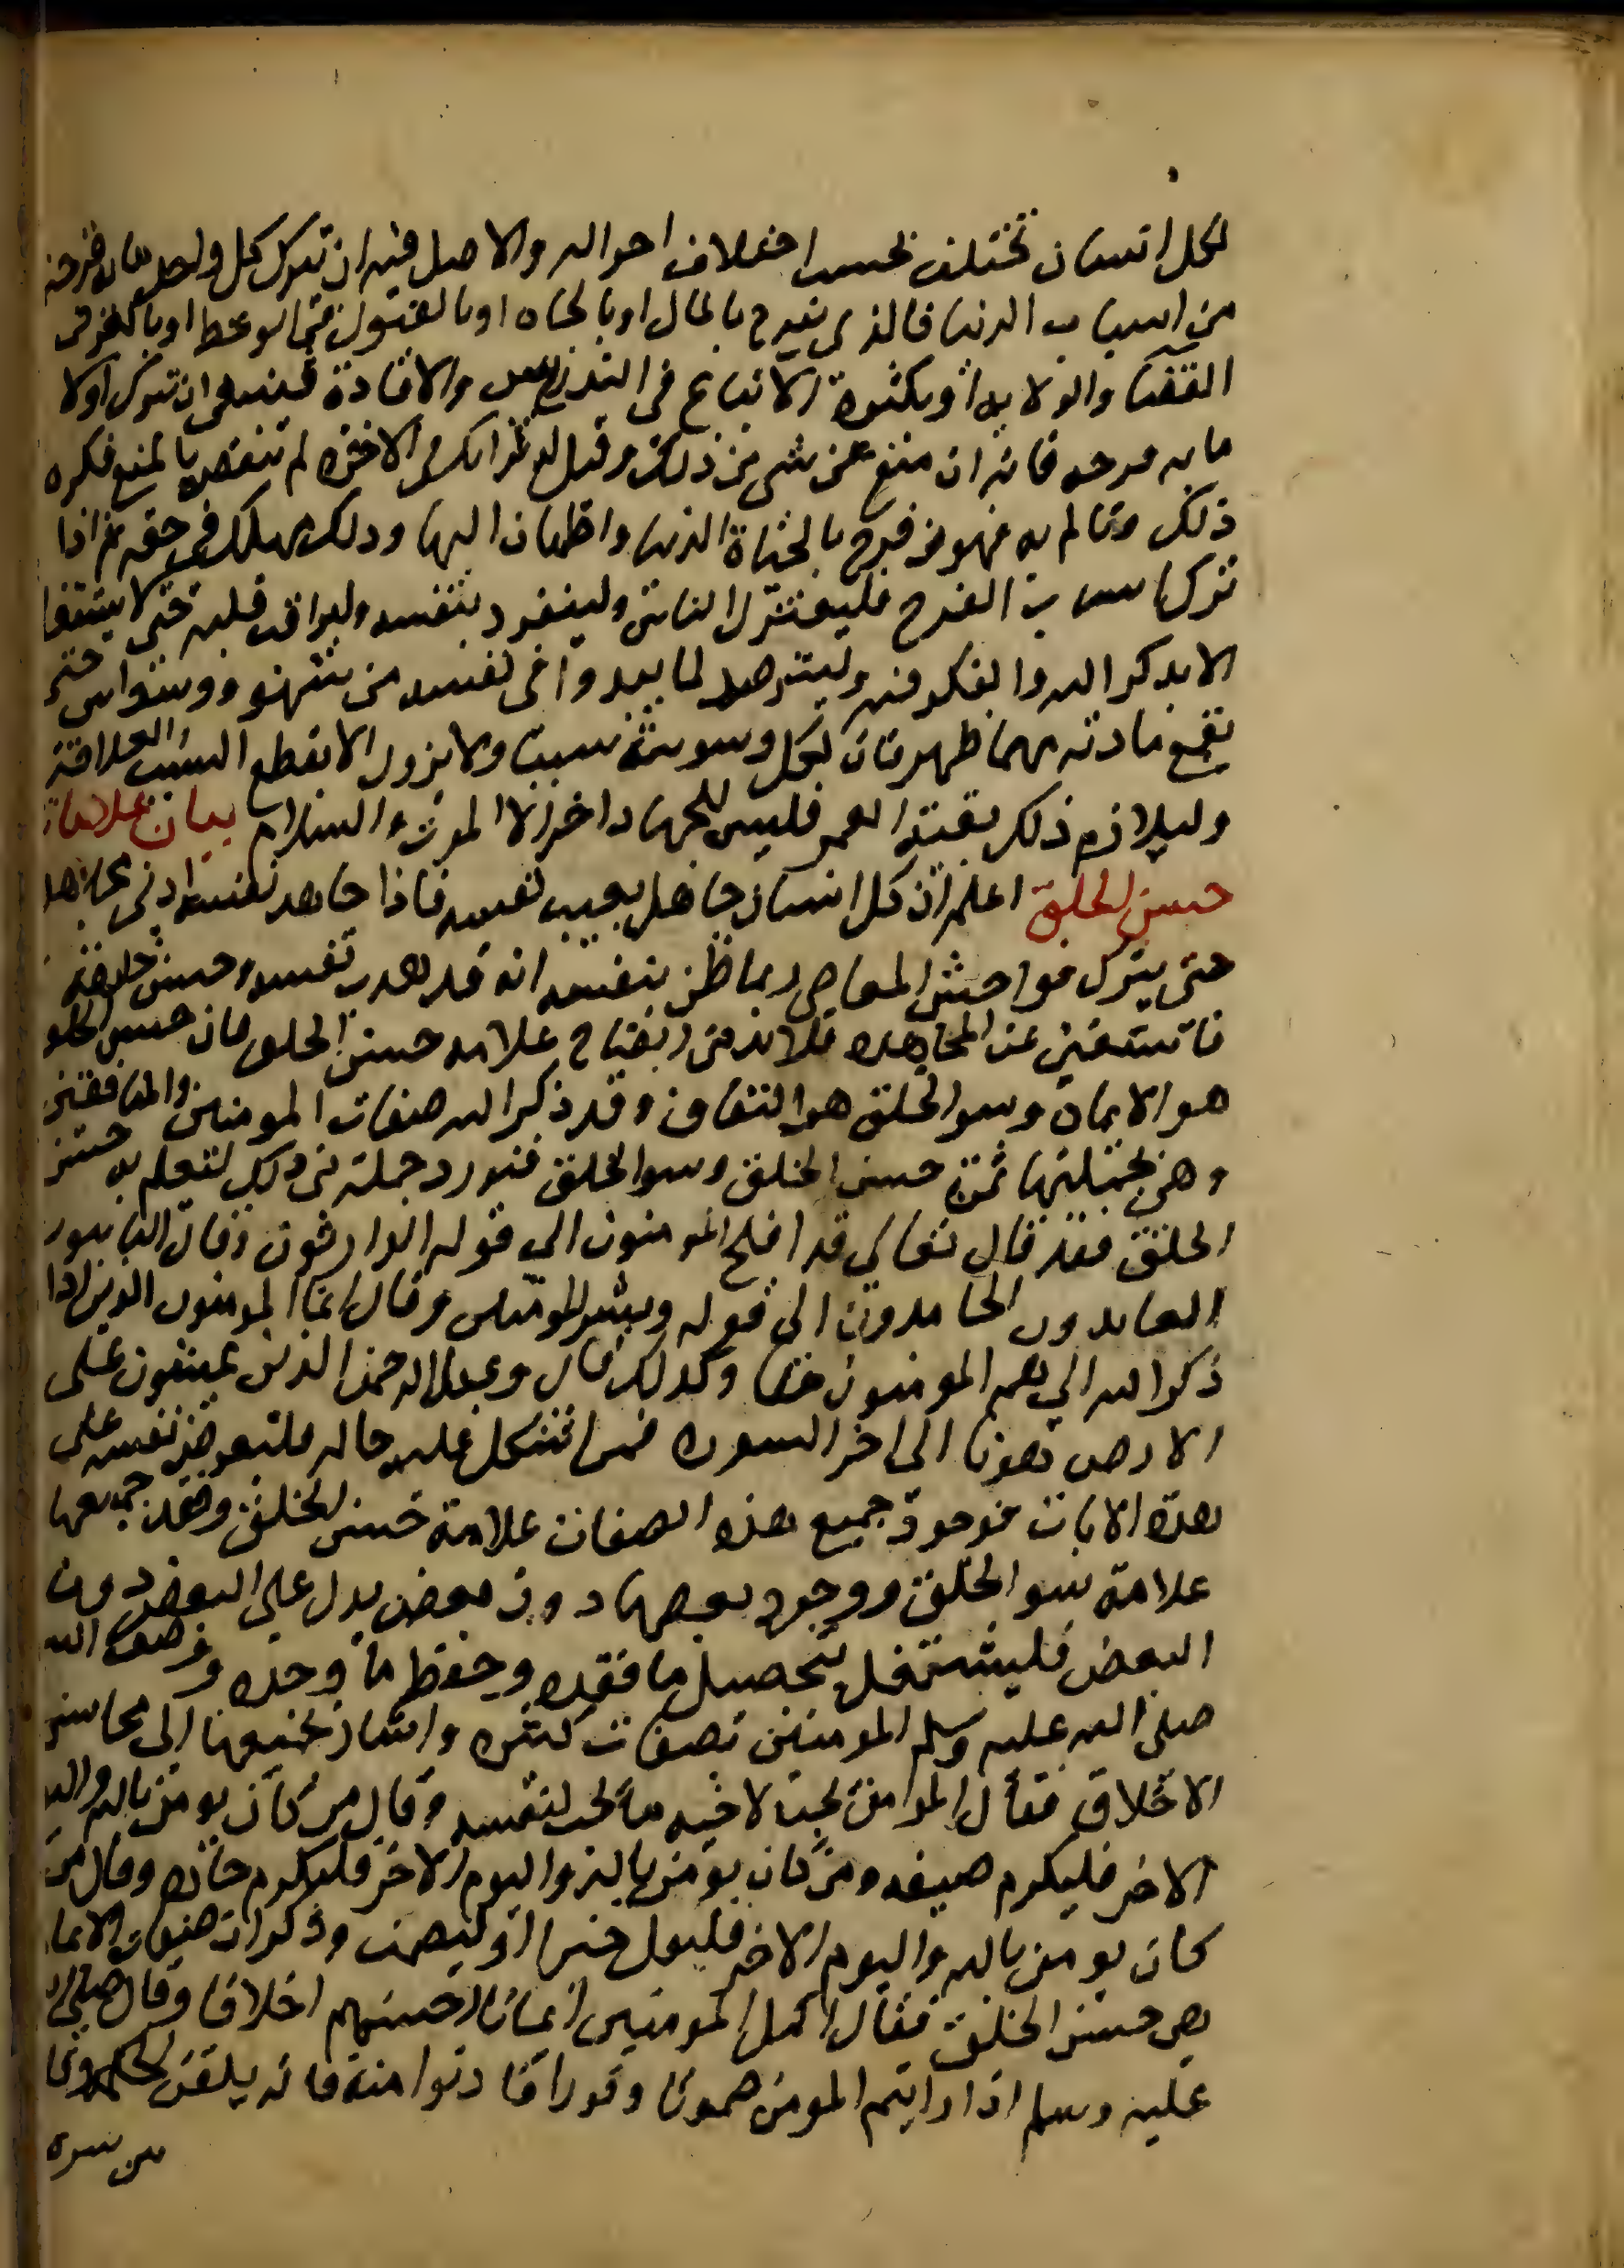 لكل انسان تختلف بحسب اختلاف احواله والاصل فيه ان يترك كل واحد مابه فرحه
من اسباب الدنيا فالذي يفرح بالمال او بالجاه او بالقبول في الوعظ او بالعز في
القضا والولايه او بكثرة الاتباع في التدريس والافادة فينبغي ان يترك اولا
ما به فرحه فانه ان منع عن شي من ذلك وقيل له ثوابك في الاخره لم تنقص بالمنع فكره
ذلك وتالم به فهو من فرح بالحياة الدنيا واطمان اليها وذلك مهلك في حقه ثم اذا
ترك اسباب الفرح فليعتزل الناس ولينفرد بنفسه وليراقب قلبه حتى لا يشتغل
الا بذكر الله والفكر فيه وليترصد لما يبدوا في نفسه من شهوه ووسواس حتى
يقمع مادته مهما ظهر فان لكل وسوسة سببا ولا يزول الا بقطع السبب والعلاقة
وليلازم ذلك بقية العمر فليس للجهاد اخر الا الموت والسلام بيان علامات
حسن الخلق اعلم ان كل انسان جاهل بعيب نفسه فاذا جاهد نفسه ادنى مجاهده
حتى يترك فواحش المعاصي ربما ظن بنفسه انه قد هذب نفسه وحسن خلقه
فاستغنى عن المجاهده فلا بد من ايضاح علامه حسن الخلق فان حسن الخلق
هو الايمان وسو الخلق هو النفاق وقد ذكر الله صفات المومنين والمنافقين
وهي بجملتها ثمرة حسن الخلق وسو الخلق فنورد جملة من ذلك لتعلم به حسن
الخلق فقد قال تعالى قد افلح المومنون الى قوله الوارثون وقال التايبون
العابدون الحامدون الى قوله وبشر المومنين وقال انما المومنون الذين اذا
ذكر الله الى هم المومنون حقا وكذلك قال وعباد الرحمن الذين يمشون على
الارض هونا الى اخر السوره فمن اشكل عليه حاله فليعرض نفسه على
هذه الايات فوجود جميع هذه الصفات علامة حسن الخلق وفقد جميعها
علامة سو الخلق ووجود بعضها دون بعض يدل على البعض دون
البعض فليشتغل بتحصيل ما فقده وحفظ ما وجده ووصف رسول الله
صلى الله عليه وسلم المومنين بصفات كثيره واشار بجميعها الى محاسن
الاخلاق فقال المومن يحب لاخيه ما يحب لنفسه وقال من كان يومن بالله واليوم
الاخر فليكرم ضيفه ومن كان يومن بالله واليوم الاخر فليكرم جاره وقال من
كان يومن بالله واليوم الاخر فليقل خيرا او ليصمت وذكر ان صفات الايمان
هي حسن الخلق فقال اكمل المومنين ايمانا احسنهم اخلاقا وقال صلى الله
عليه وسلم اذا رايتم المومن صموتا وقورا فادنوا منه فانه يلقن الحكمه وقال
من سره